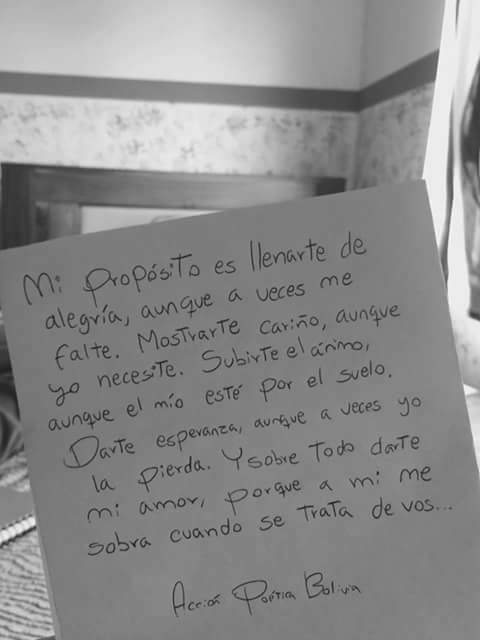 Mi Propósito es llenarte de
alegría, aunque a veces me
falte. Mostrarte cariño, aunque
yo necesite. Subirte el ánimo,
aunque el mío esté por el suelo.
Darte esperanza, aunque a veces yo
la pierda. Y sobre todo darte
mi amor, porque a mi me
sobra cuando se trata de vos...
Acción Poética Bolivia